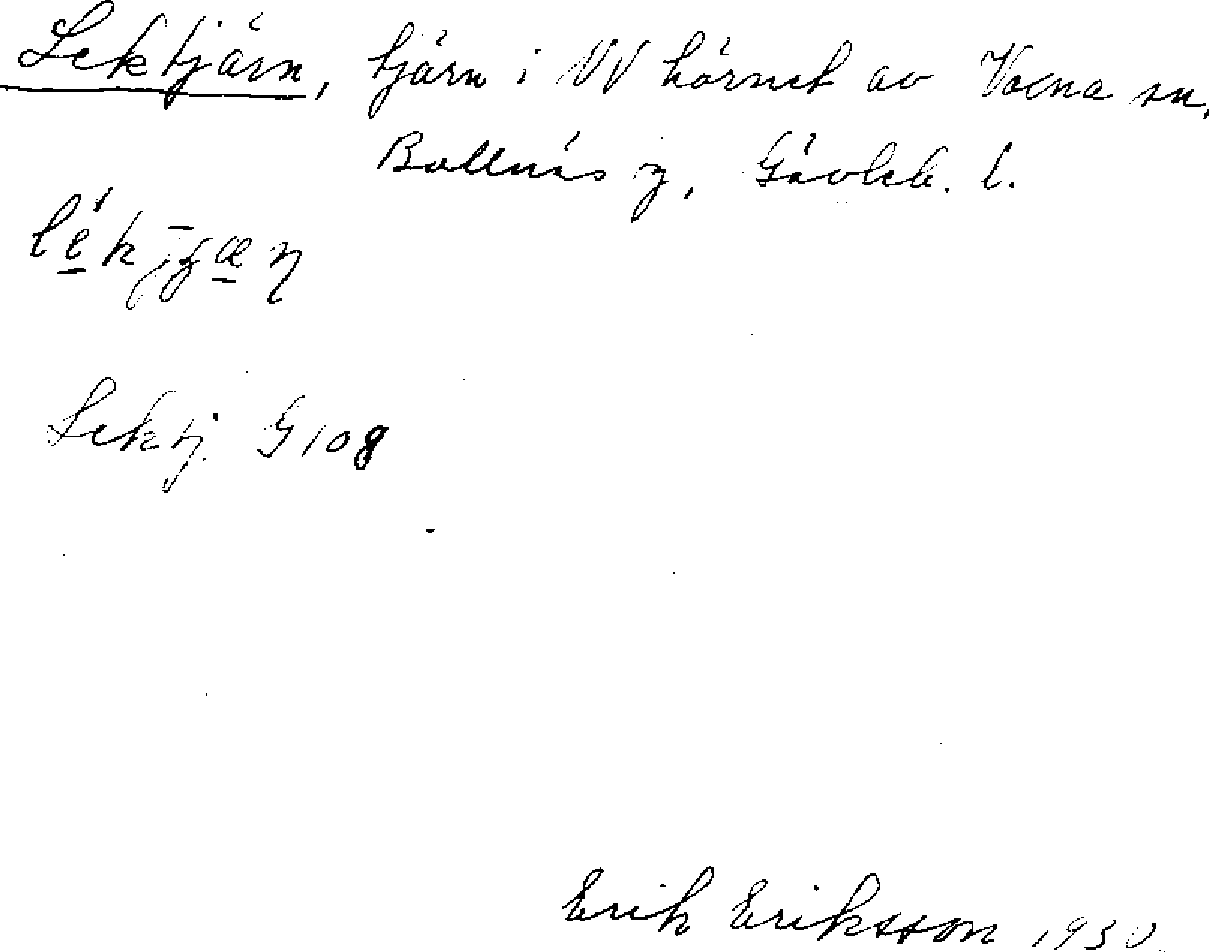 Lektjärn, tjärn i NV hörnet av Voxna sn,
Bollnäs tg, Gävleb. l.
Lektj. G 108
Erik Eriksson 1930.